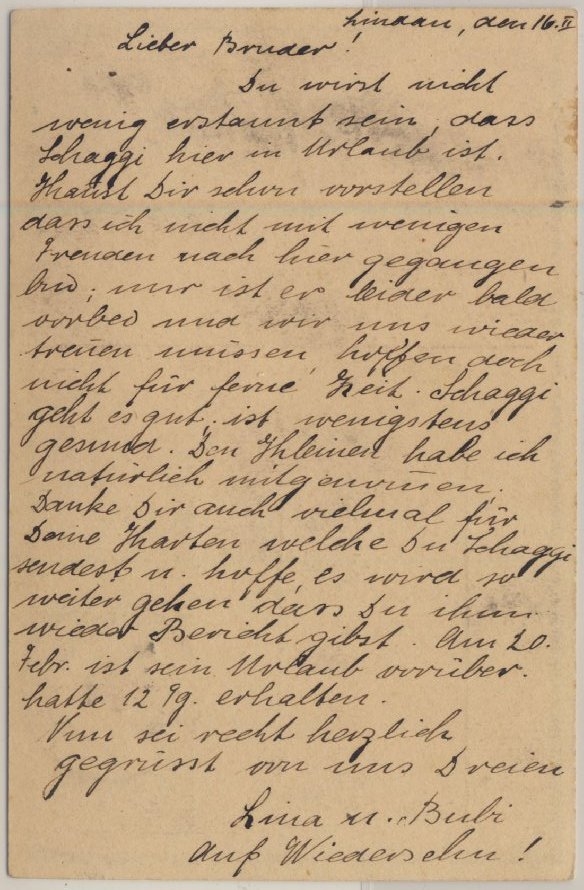 Lindau, den 16. II
Lieber Bruder!
Du wirst nicht
wenig erstaunt sein, dass
Schaggi hier in Urlaub ist.
Kanst Dir schon vorstellen
dass ich nicht mit wenigen
Freuden nach hier gegangen
bin; nur ist er leider bald
vorbei und wir uns wieder
trenen müssen, hoffen doch
nicht für ferne Zeit. Schaggi
geht es gut, ist wenigstens
gesund. Den Kleinen habe ich
natürlich mitgenomen.
Danke Dir auch vielmal für
Deine Karten welche Du Schaggi
sendest u. hoffe, es wird so
weiter gehen dass Du ihm
wieder Bericht gibst. Am 20.
Febr. ist sein Urlaub vorüber.
hatte 12 Tg. erhalten.
Nun sei recht herzlich
gegrüsst von uns Dreien
Lina u. Bubi
Auf Wiedersehn!